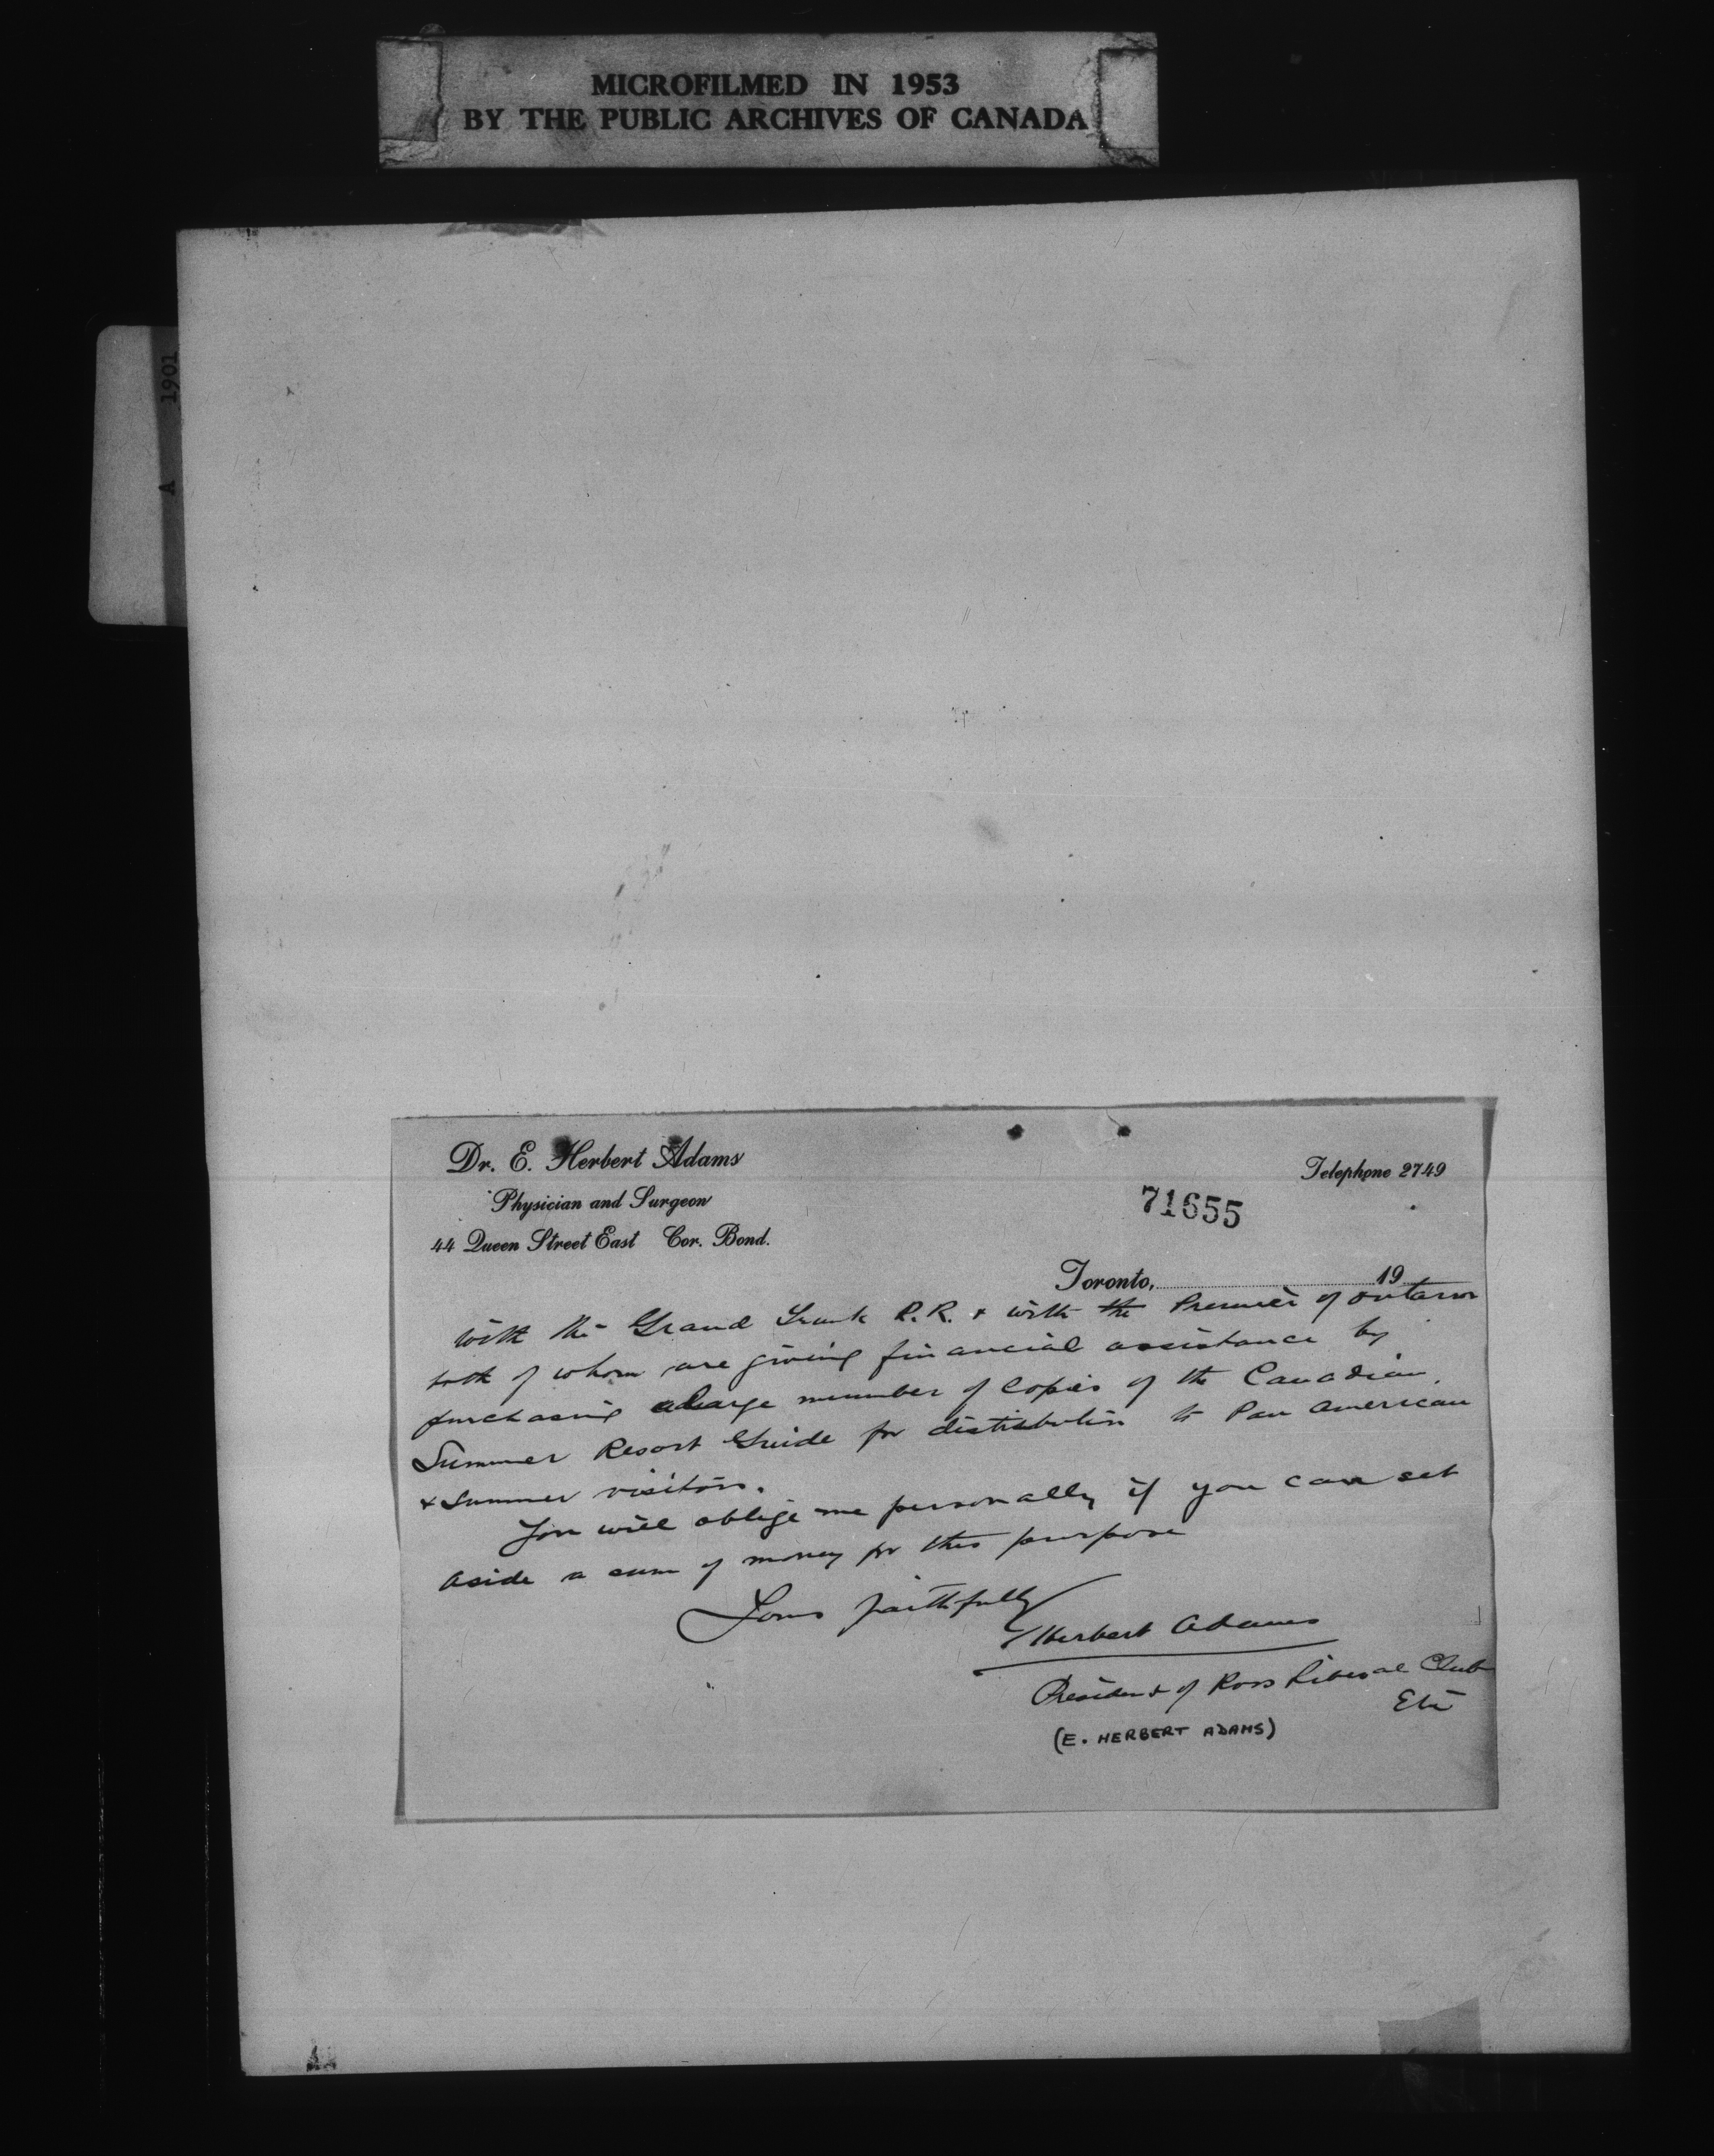 MICROFILMED IN 1953
BY THE PUBLIC ARCHIVES OF CANADA
A 1901
Dr. E. Herbert Adams
Physician and Surgeon
44 Queen Street East Cor. Bond.
Telephone 2749
71655
Toronto, 19
with the Grand Trunk R.R. & with the Premier of Ontario
both of whom are giving financial assistance by
purchasing a large number of copies of the Canadian
Summer Resort Guide for distribution to Pan American
& Summer visitors.
You will oblige me personally if you can set
aside a sum of money for this purpose
Yours faithfully
E Herbert Adams
President of Ross Liberal Club
Etc
(E. HERBERT ADAMS)